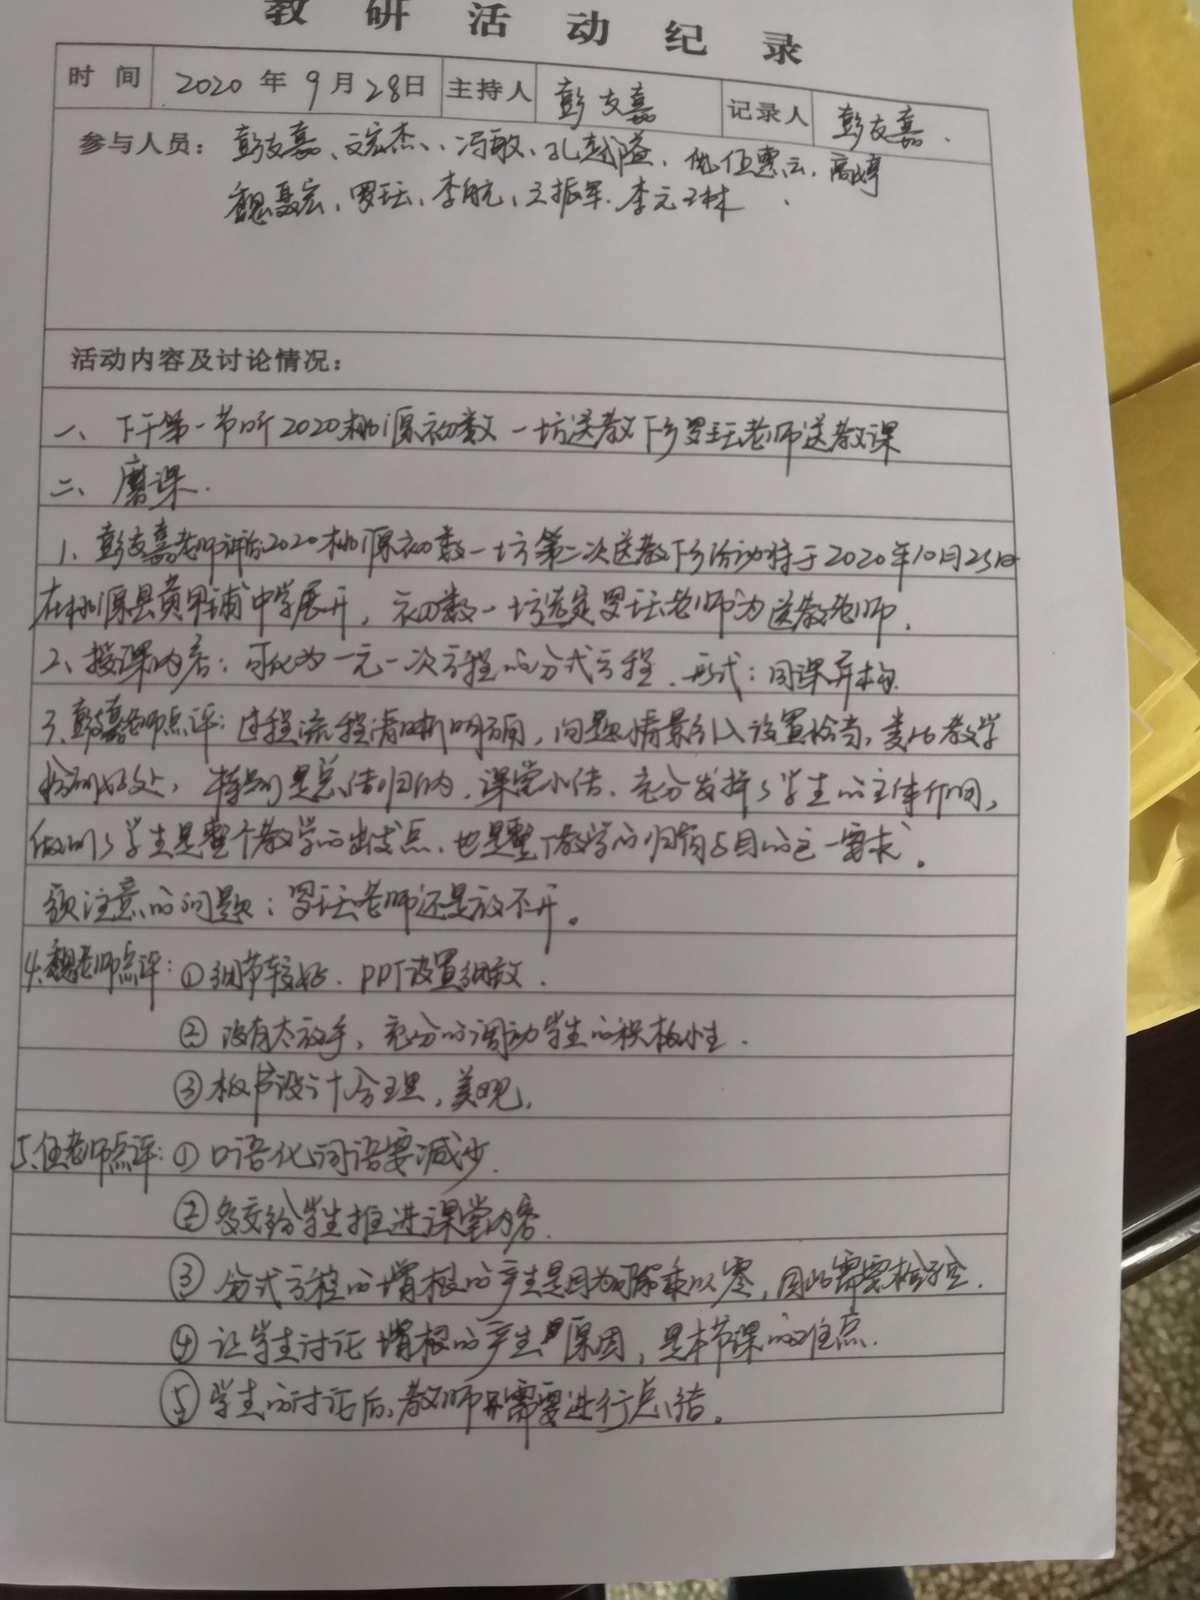 教研活动纪录
时间 2020年9月28日 主持人 彭友嘉 记录人 彭友嘉.
参与人员：彭友嘉、文宏杰、冯敏、孔越隘、任惠云、高婷
魏聂宏、罗坛、李航、王振军、李元林、
活动内容及讨论情况：
一、下午第一节听2020桃源初数一坊送教下乡罗坛老师送教课
二、磨课.
1、彭友嘉老师评后2020桃源初数一坊第二次送教下乡活动将于2020年10月25日
在桃源县黄甲铺中学展开，初数一坊选定罗坛老师为送教老师.
2、授课内容：可化为一元一次方程的分式方程.形式：同课异构.
3、彭友嘉老师点评：过程流程清晰明确，问题情景引入设置恰当，类比教学
恰到好处，特别是总结归纳、课堂小结.充分发挥了学生的主体作用，
做到了学生是整个教学的出发点、也是整个教学的归宿与目的这一要求。
须注意的问题：罗坛老师还是放不开。
4.魏老师点评：①细节较好.PPT设置细致.
②没有太放手，充分的调动学生的积极性.
③板书设计合理，美观.
5.任老师点评：①口语化词语要减少.
②多交给学生推进课堂内容.
③分式方程的增根的产生是因为可能乘以零，因此需要检验.
④让学生讨论增根的产生原因，是本节课的难点.
⑤学生的讨论后，教师需要进行总结。